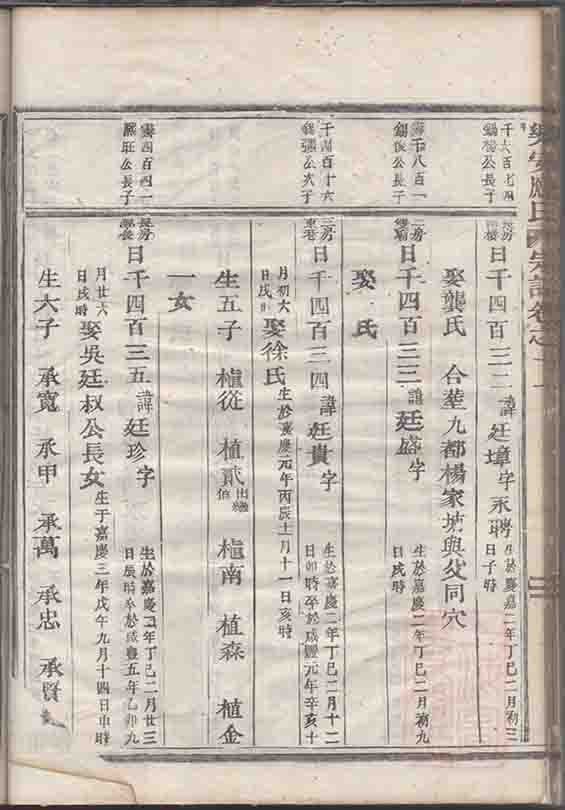 應氏宗譜卷之
千六百七四
錫楊公長子
日千四百三二 諱廷璋字永聘 生於慶嘉二年丁巳二月初三
日子時
娶龔氏 合葬九都楊家塘與父同穴
千八百一
公長子
二房
日千四百三三 諱廷盛字 生於嘉慶二年丁巳二月初九
日戌時
娶 氏
千四百十六
公次子
三房
東巷
日千四百三四 諱廷貴字 生於嘉慶二年丁巳二月十二
日卯時卒於咸豐元年辛亥十
月初六
日戌時
娶徐氏 生於嘉慶元年丙辰十一月十一日亥時
生五子 植從 植貳 出繼 植南 植森 植金
一女
四百四一
公長子
長房
日千四百三五 諱廷珍字 生於嘉慶二年丁巳二月廿三
日辰時卒於咸豐五年乙卯九
月廿六
日戌時
娶吳廷叔公長女 生于嘉慶三年戊午九月十四日申時
生六子 承寬 承甲 承萬 承忠 承賢